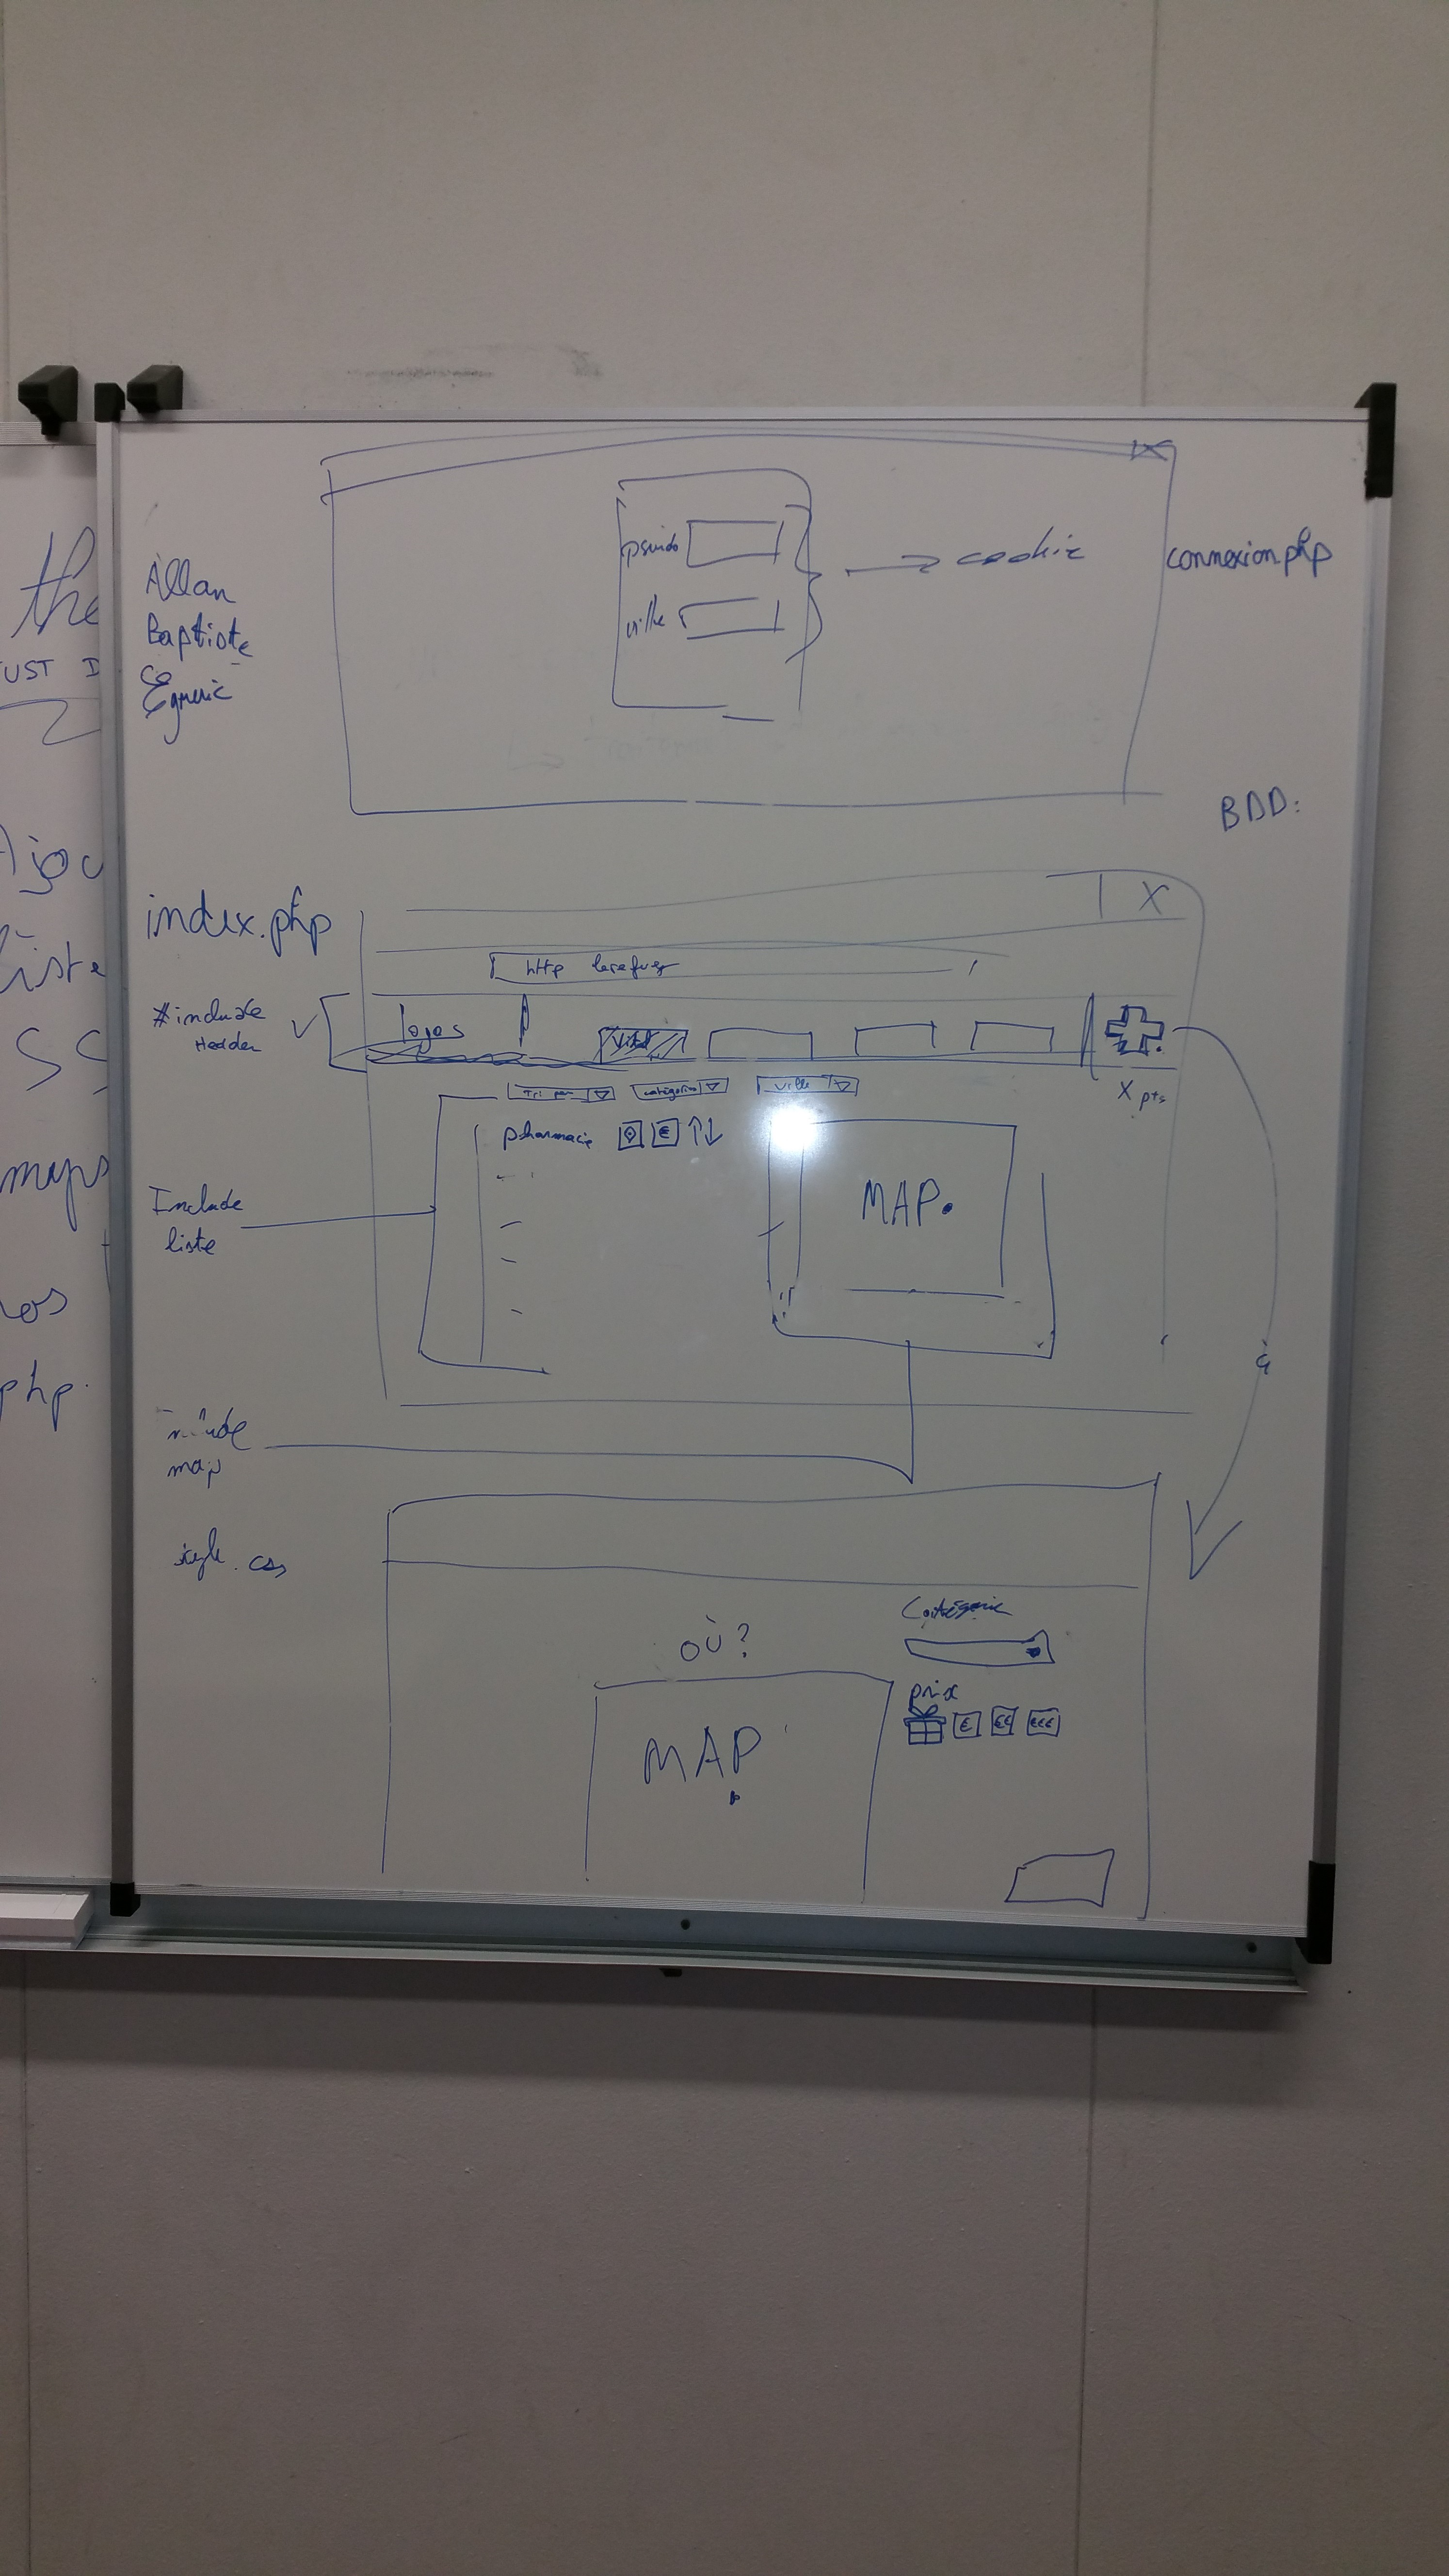 the
UST D
Ajou
liste
SS
maps
os
php.
Allan
Baptiste
pseudo
ville
cookie
connexion.php
BDD:
index.php
http
#include
Header
logos
X
X pts
Tri par
catégorie
ville
pharmacie
€
↑↓
MAP
Include
liste
map
style.css
où?
MAP
Catégorie
prix
€ €€ €€€